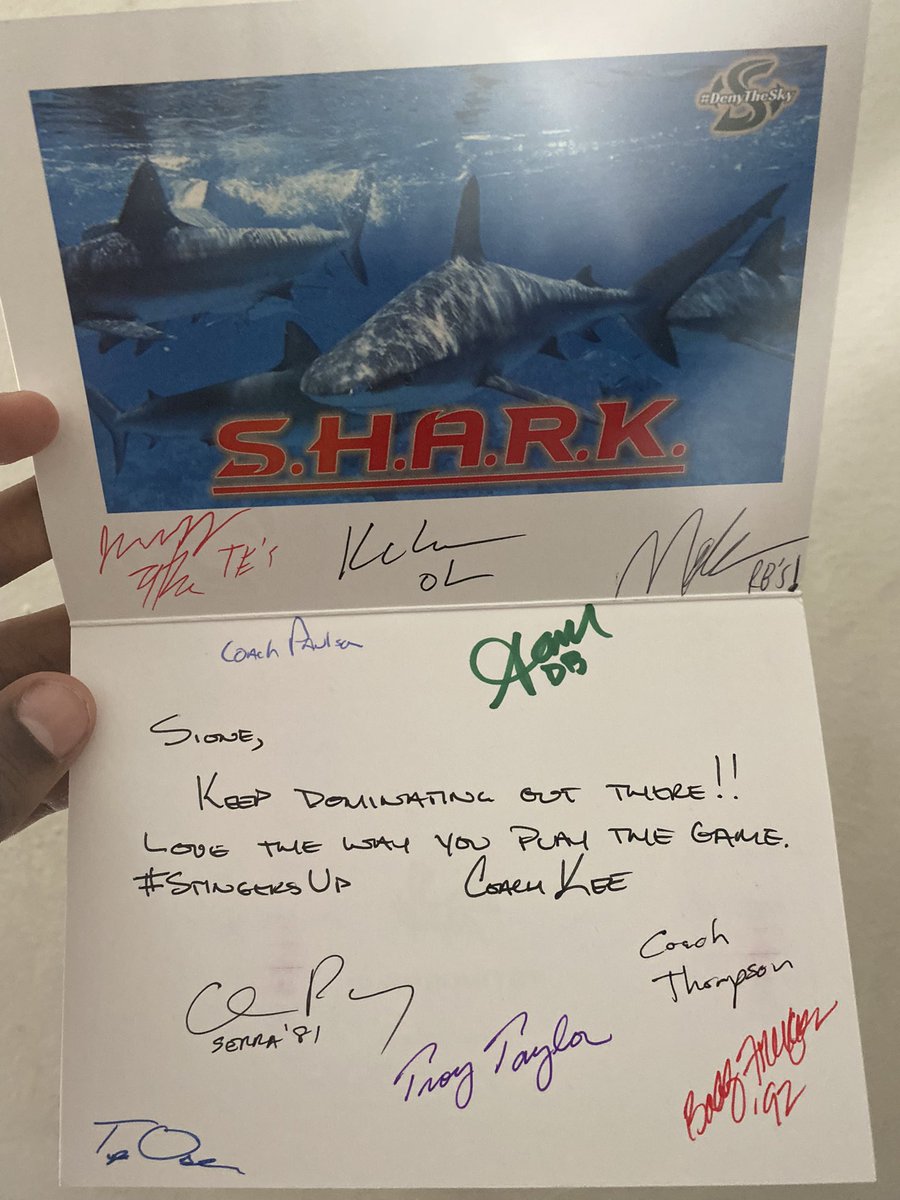 #DenyTheSky
S.H.A.R.K.
TE's
OL
RB's!
Coach Paulsen
DB
Sione,
Keep dominating out there!!
Love the way you play the game.
#StingersUp Coach Kee
Coach
Thompson
Serra '81
Troy Taylor
'92